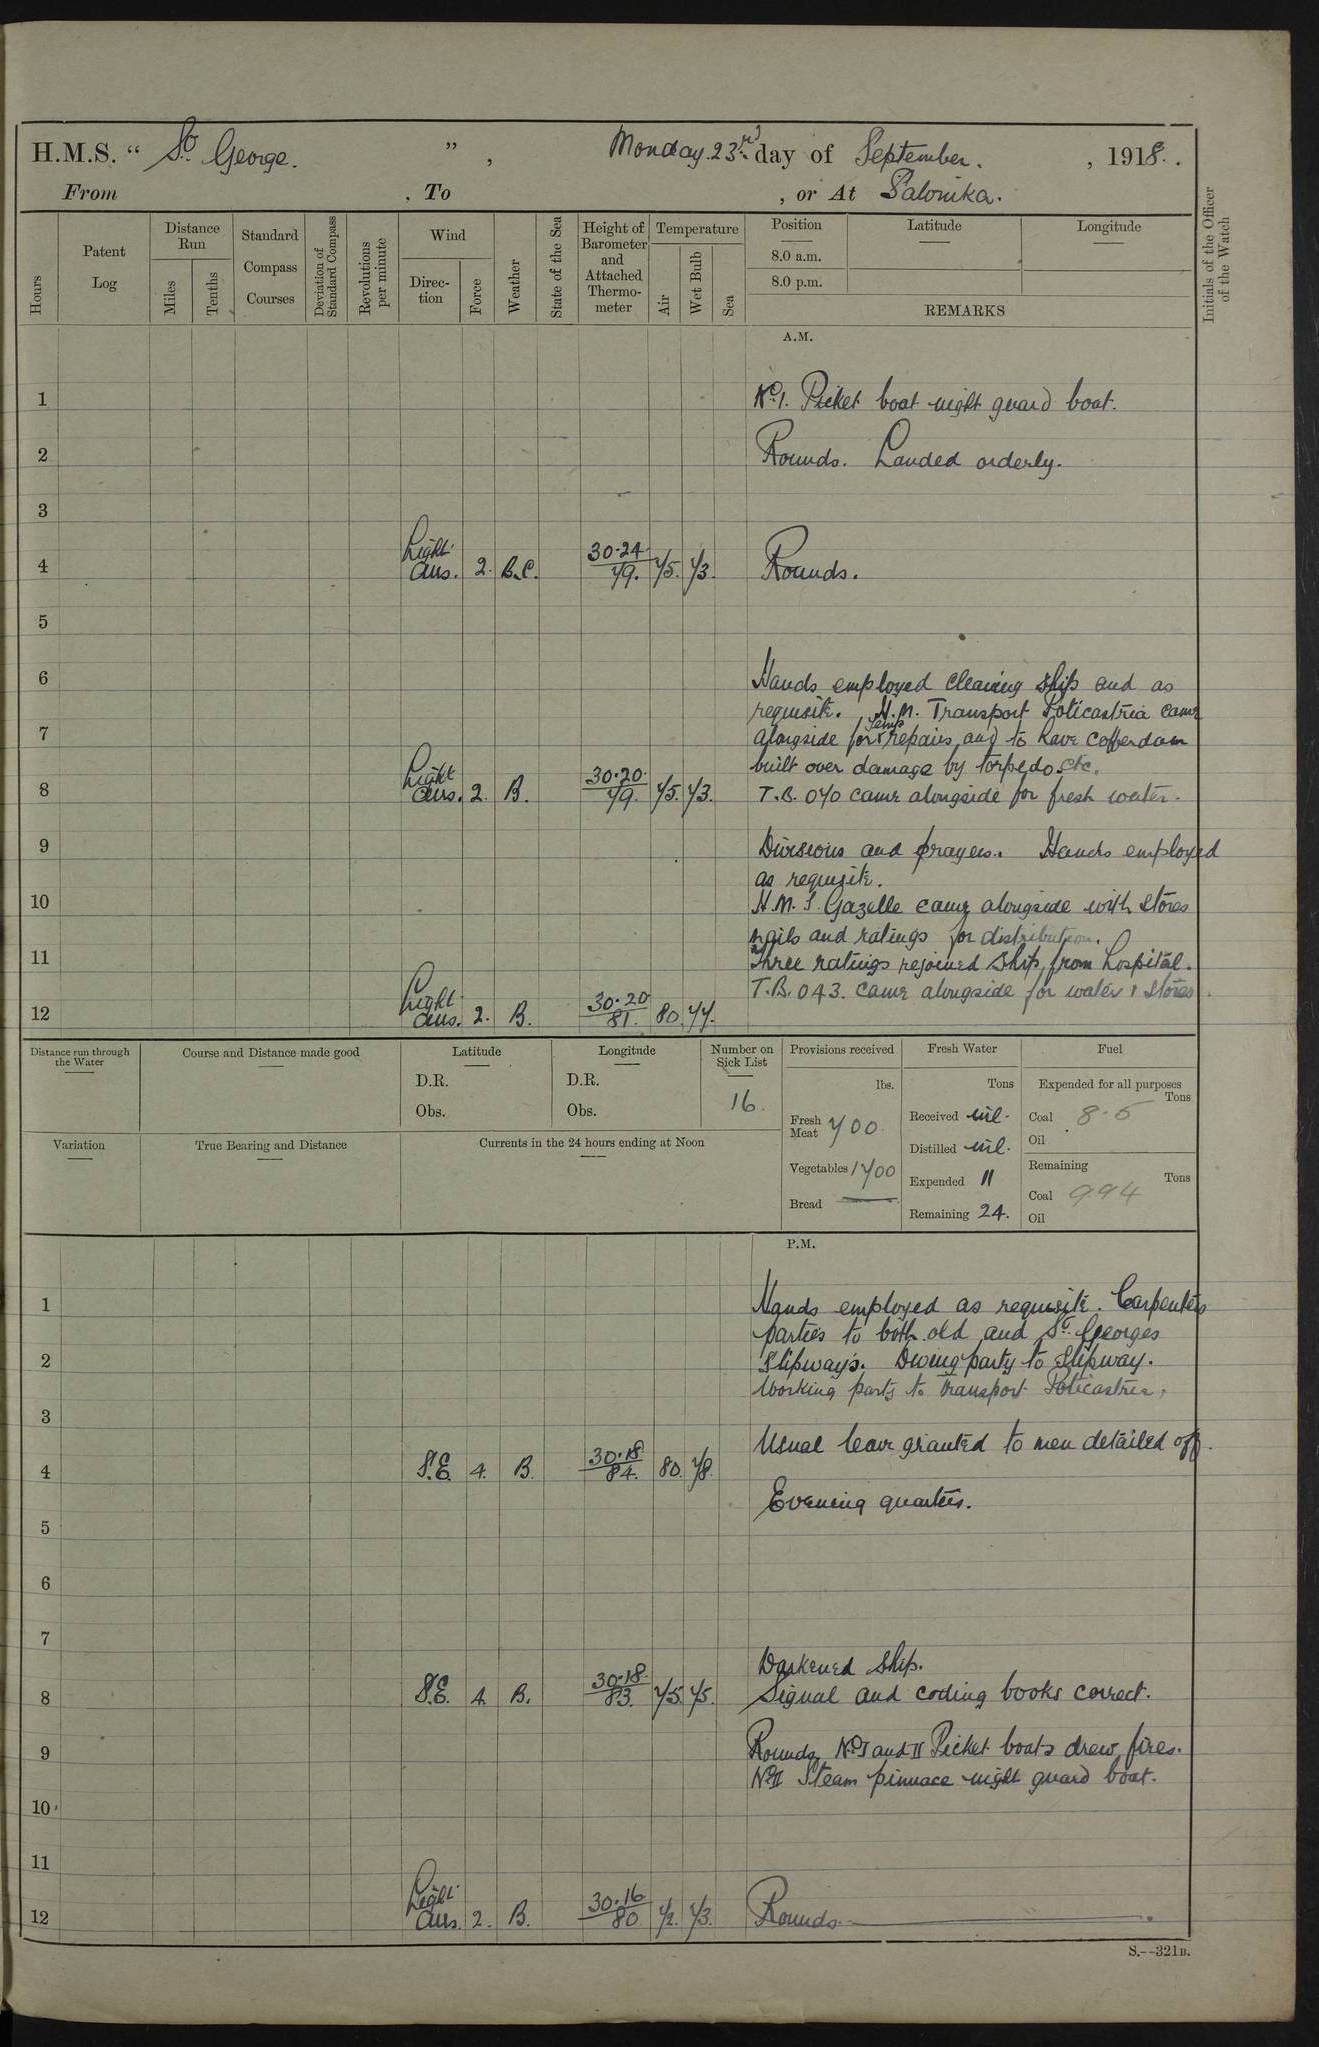 H.M.S. “ St. George. ” , Monday 23rd day of September. , 1918.
From , To , or At Salonika.
Hours
Patent Log
Distance Run
Miles
Tenths
Standard Compass Courses
Deviation of Standard Compass
Revolutions per minute
Wind
Direction
Force
Weather
State of the Sea
Height of Barometer and Attached Thermometer
Temperature
Air
Wet Bulb
Sea
Position Latitude Longitude
8.0 a.m.
8.0 p.m.
REMARKS
Initials of the Officer of the Watch
A.M.
1 No. 1. Picket boat night guard boat.
2 Rounds. Landed orderly.
3
4 Light airs. 2. B.C. 30.24 79. 75. 73. Rounds.
5
6 Hands employed cleaning ship and as
requisite. H.M. Transport Policastria came
7 alongside for temp repairs, and to have cofferdam
built over damage by torpedo etc.
8 Light airs. 2. B. 30.20 79. 75. 73. T.B. 070 came alongside for fresh water.
9 Divisions and prayers. Hands employed
as requisite.
10 H.M.S. Gazelle came alongside with stores
mails and ratings for distribution.
11 Three ratings rejoined ship from hospital.
T.B. 043. came alongside for water & stores.
12 Light airs. 2. B. 30.20 81. 80. 77.
Distance run through the Water
Course and Distance made good
Latitude
D.R.
Obs.
Longitude
D.R.
Obs.
Number on Sick List
16.
Provisions received
lbs.
Fresh Meat 700.
Vegetables 1700
Bread —
Fresh Water
Tons
Received nil.
Distilled nil.
Expended 11
Remaining 24.
Fuel
Expended for all purposes
Tons
Coal 8.5
Oil
Remaining
Tons
Coal 994
Oil
Variation
True Bearing and Distance
Currents in the 24 hours ending at Noon
P.M.
1 Hands employed as requisite. Carpenters
parties to both old and St. Georges
2 Slipway's. Diving party to Slipway.
Working party to transport Policastria.
3
Usual leave granted to men detailed off.
4 S.E. 4. B. 30.18 84. 80. 78.
Evening quarters.
5
6
7
Darkened ship.
8 S.E. 4. B. 30.18. 83. 75. 75. Signal and coding books correct.
9 Rounds, No. I and II Picket boats drew fires.
No. II Steam pinnace night guard boat.
10
11
12 Light airs. 2. B. 30.16 80. 72. 73. Rounds.
S.--321B.